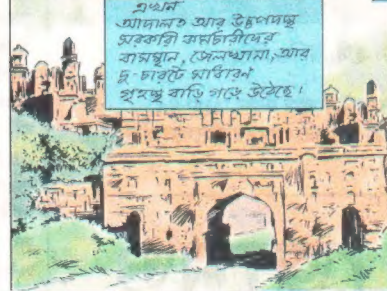 এখন
আদালত আর উচ্চপদস্থ
সরকারী কর্মচারীদের
বাসস্থান, জেলখানা, আর
দু-চারটে সাধারন
গৃহস্থ বাড়ি গড়ে উঠেছে।